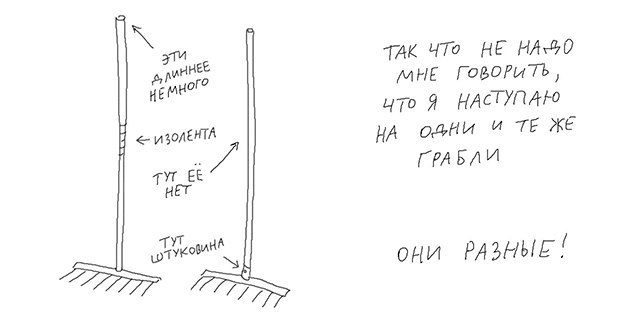 ЭТИ
ДЛИННЕЕ
НЕМНОГО
ИЗОЛЕНТА
ТУТ ЕЁ
НЕТ
ТУТ
ШТУКОВИНА
ТАК ЧТО НЕ НАДО
МНЕ ГОВОРИТЬ,
ЧТО Я НАСТУПАЮ
НА ОДНИ И ТЕ ЖЕ
ГРАБЛИ
ОНИ РАЗНЫЕ!